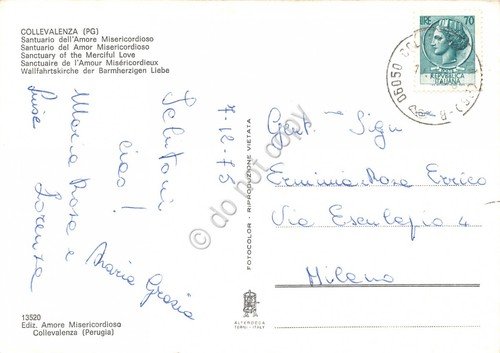 COLLEVALENZA (PG)
Santuario dell'Amore Misericordioso
Santuario del Amor Misericordioso
Sanctuary of the Merciful Love
Sanctuaire de l'Amour Miséricordieux
Wallfahrtskirche der Barmherzigen Liebe
LIRE 70
REPVBBLICA
ITALIANA
06050 COLL
7-12-75
Salutoni
ciao!
Maria Rosa e Maria Grazia
Luisa Lorenza
FOTOCOLOR - RIPRODUZIONE VIETATA
do not copy
Gent. Sig.
Erminia Rosa Errico
Via Esculapio 4
Milano
13520
Ediz. Amore Misericordioso
Collevalenza (Perugia)
ALTEROCCA
TERNI - ITALY